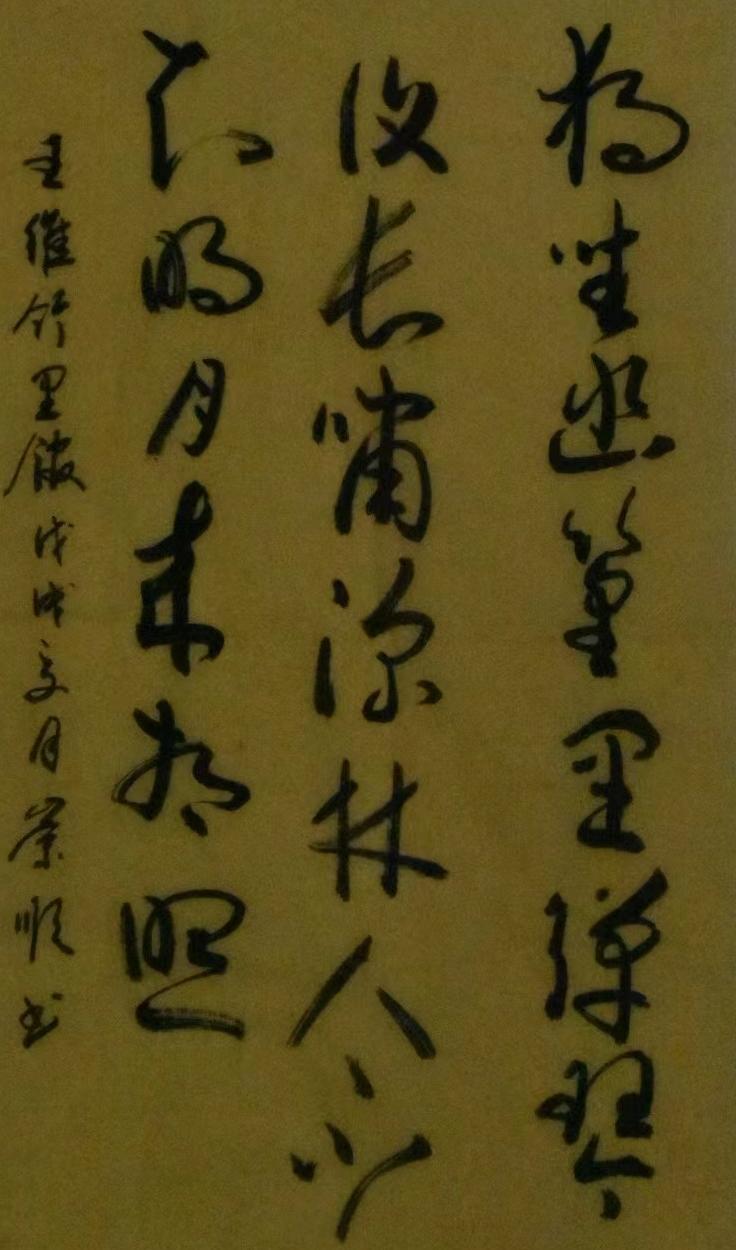 独坐幽篁里弹琴
复长啸深林人不
知明月来相照
王维竹里馆戊戌夏月崇顺书